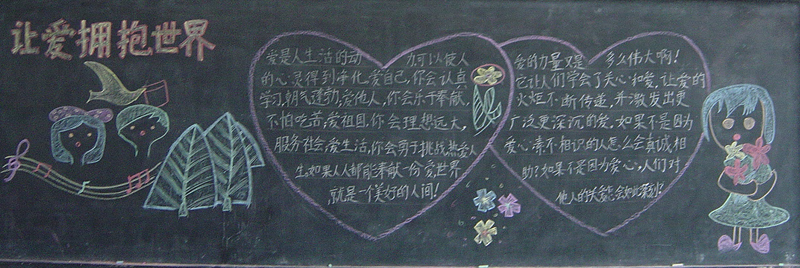 让爱拥抱世界
爱是人生活的动 力可以使人
的心灵得到净化,爱自己,你会认真
学习,朝气蓬勃,爱他人,你会乐于奉献
不怕吃苦,爱祖国,你会理想远大,
服务社会,爱生活,你会勇于挑战热爱人
生,如果人人都能奉献一份爱世界
就是一个美好的人间!
爱的力量又是 多么伟大啊!
它让人们学会了关心和爱,让爱的
火炬不断传递,并激发出更
广泛更深沉的爱,如果不是因为
爱心,素不相识的人怎么会真诚相
助?如果不是因为爱心,人们对
他人的关爱怎会如此